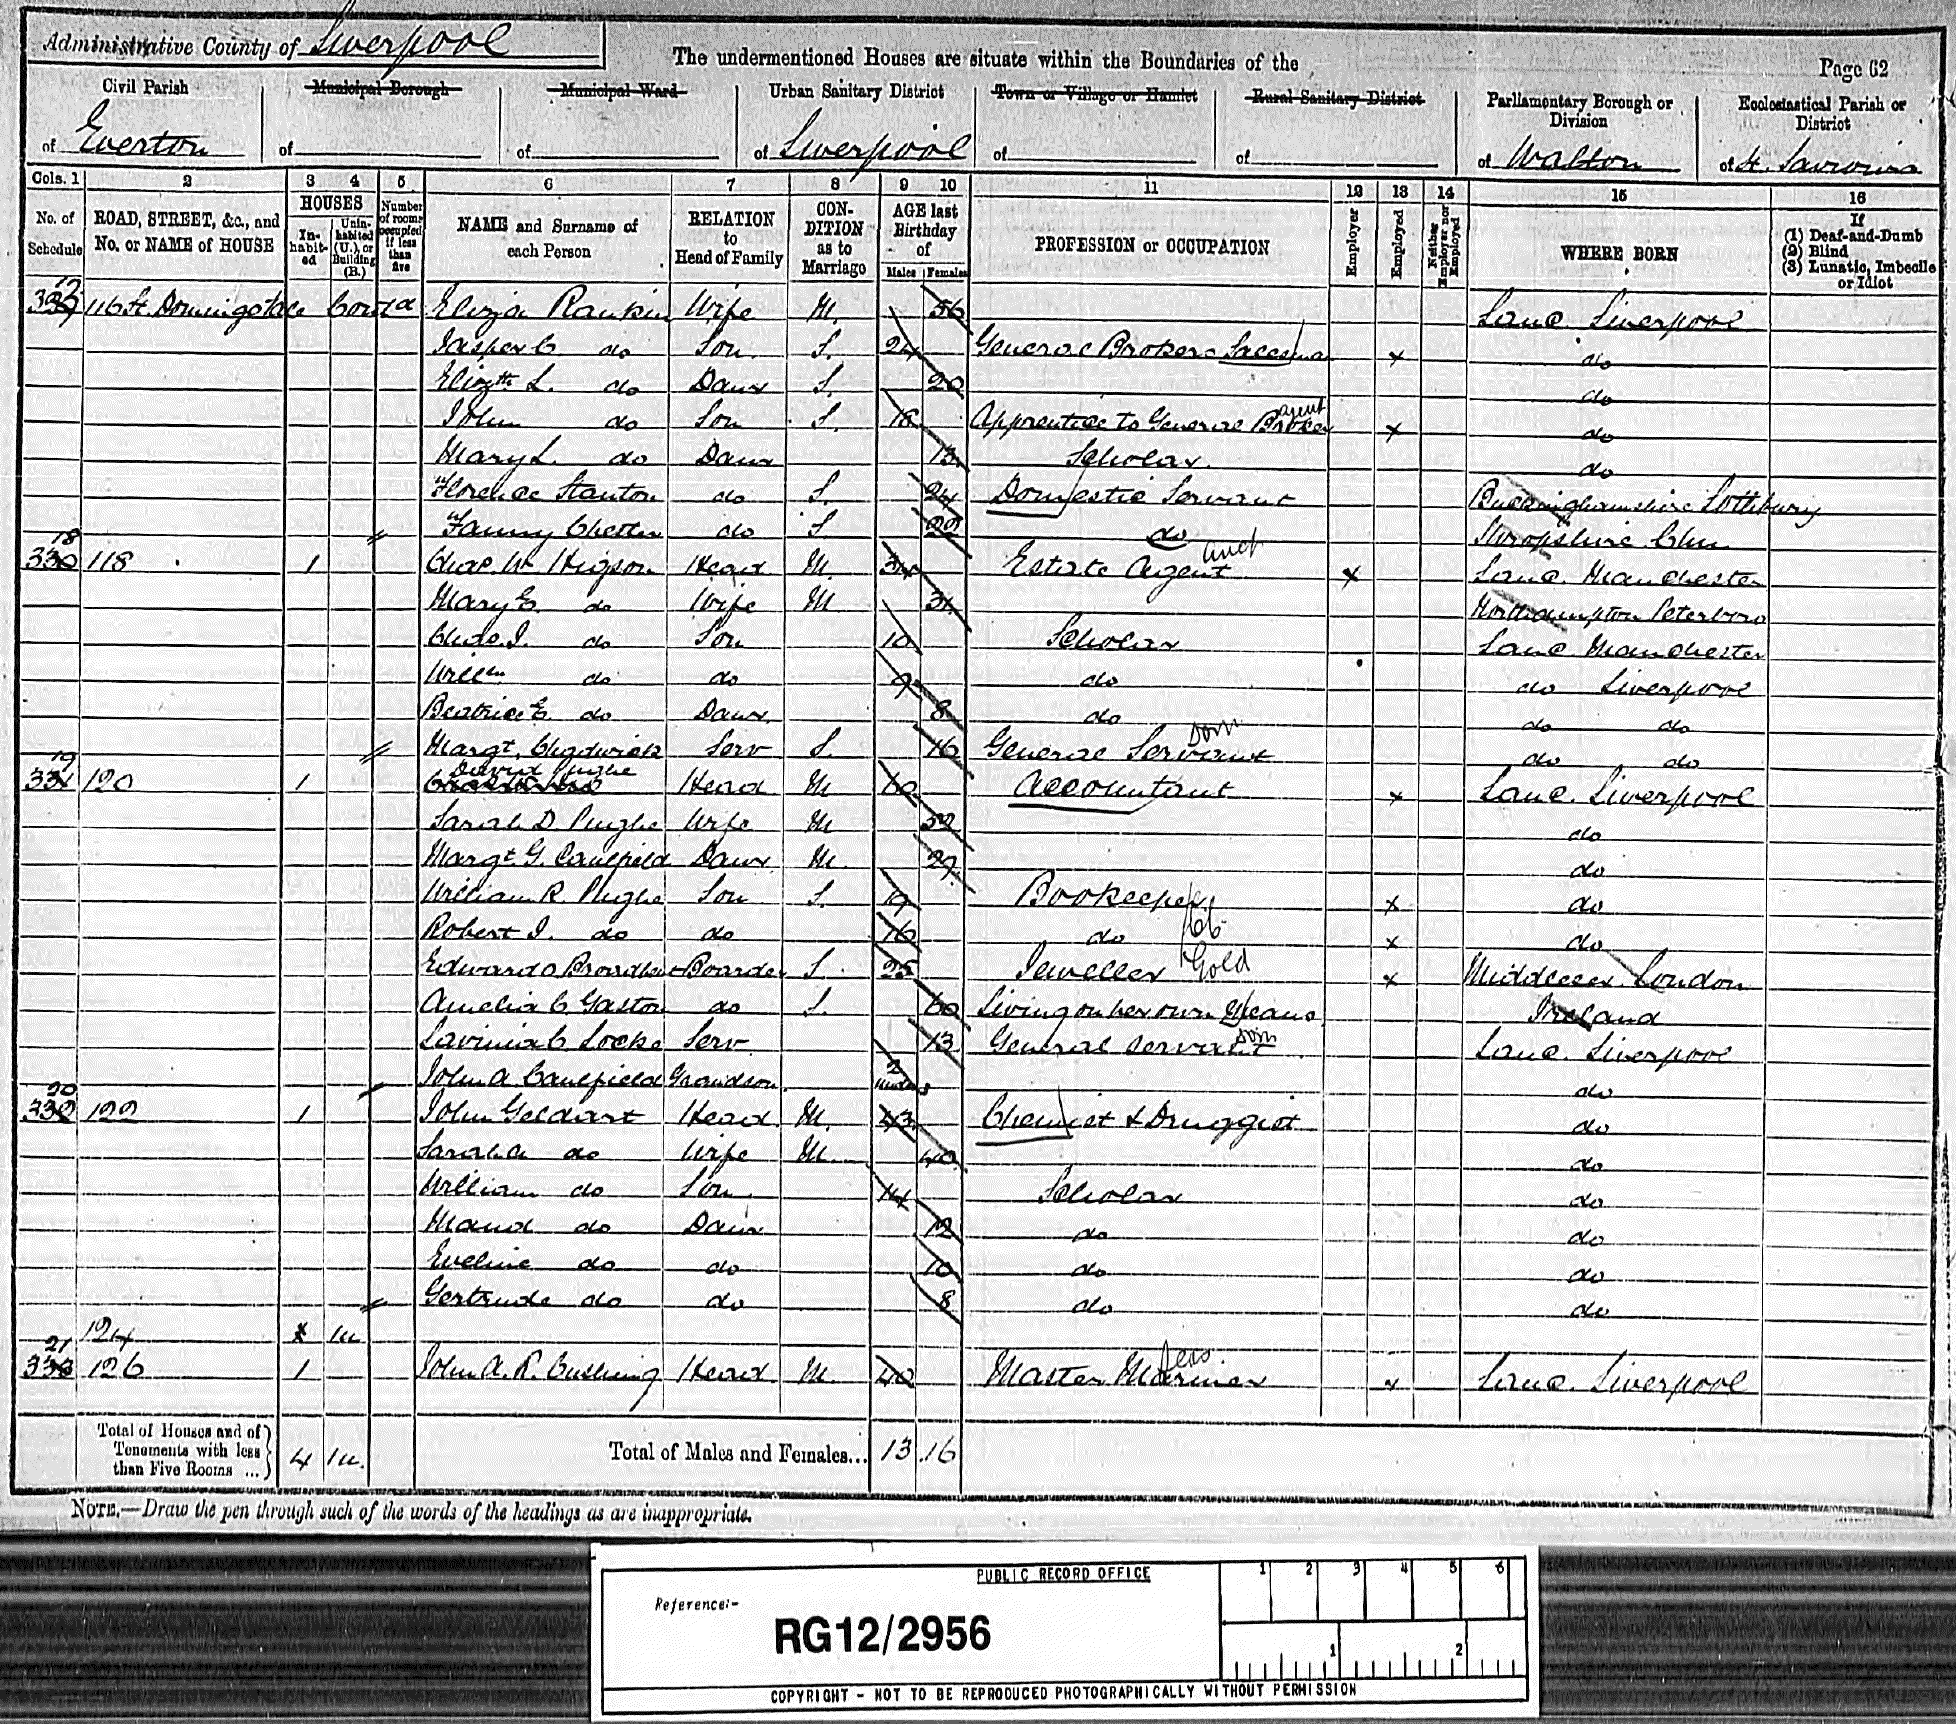 Administrative County of Liverpool
The undermentioned Houses are situate within the Boundaries of the
Page 62
Civil Parish of Everton
Municipal Borough of
Municipal Ward of
Urban Sanitary District of Liverpool
Town or Village or Hamlet of
Rural Sanitary District of
Parliamentary Borough or Division of Walton
Ecclesiastical Parish or District of St.
Cols. 1 2 3 4 5 6 7 8 9 10 11 12 13 14 15 16
No. of Schedule
ROAD, STREET, &c., and No. or NAME of HOUSE
HOUSES
In-habit-ed
Unin-habited (U.), or Building (B.)
Number of rooms occupied if less than five
NAME and Surname of each Person
RELATION to Head of Family
CON-DITION as to Marriage
AGE last Birthday of
Males Females
PROFESSION or OCCUPATION
Employer
Employed
Neither Employer nor Employed
WHERE BORN
If (1) Deaf-and-Dumb (2) Blind (3) Lunatic, Imbecile or Idiot
17 116 St. Domingo Contd Eliza Rankin Wife M. 56 Lanc. Liverpool
Jasper C. do Son S. 24 General Brokers x do
Elizth L. do Daur S. 20 do
John do Son S. 18 Apprentice to General Broker agent x do
Mary L. do Daur 13 Scholar. do
Florence Stanton do S. 24 Domestic Servant Buckinghamshire
Fanny Chester do S 22 do Shropshire Clun
18 330 118 1 Chas. W. Higson Head M. 34 Estate Agent x Lanc. Manchester
Mary E. do Wife M 31 Northampton Peterboro
Chas. J. do Son 10 Scholar Lanc Manchester
Willm do do 9 do do Liverpool
Beatrice E. do Daur 8 do do do
Margt. Chadwick Serv S. 16 General Servant Dom do do
19 331 120 1 David Pughe Head M 60 Accountant x Lanc. Liverpool
Sarah D. Pughe Wife M 52 do
Margt. G. Caulfield Daur M. 27 do
William R. Pughe Son S. 19 Bookeeper x do
Robert J. do do 16 do x do
Edward Boarder S. 25 Jeweller Gold x Middlesex London
Amelia C Gaston do S. 60 Living on her own Means Ireland
Lavinia C Locke Serv 13 General Servant Dom Lanc. Liverpool
John A. Caulfield Grandson 2 do
20 332 122 1 John Geldart Head M. 43 Chemist & Druggist do
Sarah A do Wife M. 40 do
William do Son 14 Scholar do
Maud do Daur 12 do do
Eveline do do 10 do do
Gertrude do do 8 do do
124 1u
21 333 126 1 John A. R. Cushing Head M. 40 Master Mariner x Lanc. Liverpool
Total of Houses and of Tenements with less than Five Rooms ... 4 1u.
Total of Males and Females... 13 16
NOTE.—Draw the pen through such of the words of the headings as are inappropriate.
PUBLIC RECORD OFFICE
1 2 3 4 5 6
Reference:-
RG12/2956
1 2
COPYRIGHT - NOT TO BE REPRODUCED PHOTOGRAPHICALLY WITHOUT PERMISSION